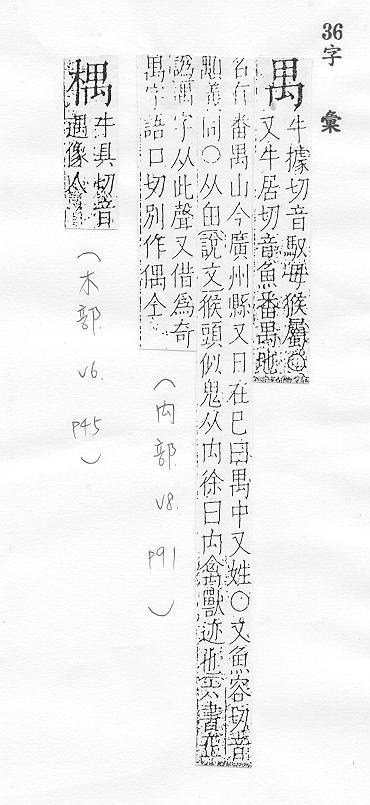 36字 彙
禺
牛據切音馭母猴屬○
又牛居切音魚番禺地
名有番禺山今廣州縣又日在巳曰禺中又姓○又魚容切音
義同○从甶說文猴頭似鬼从禸徐曰禸禽獸迹也六書正
譌禺字从此聲又借為奇
禺字語口切別作偶仝
(禸部 v8. p91)
牛具切音
遇像人
(木部 v6. p45)